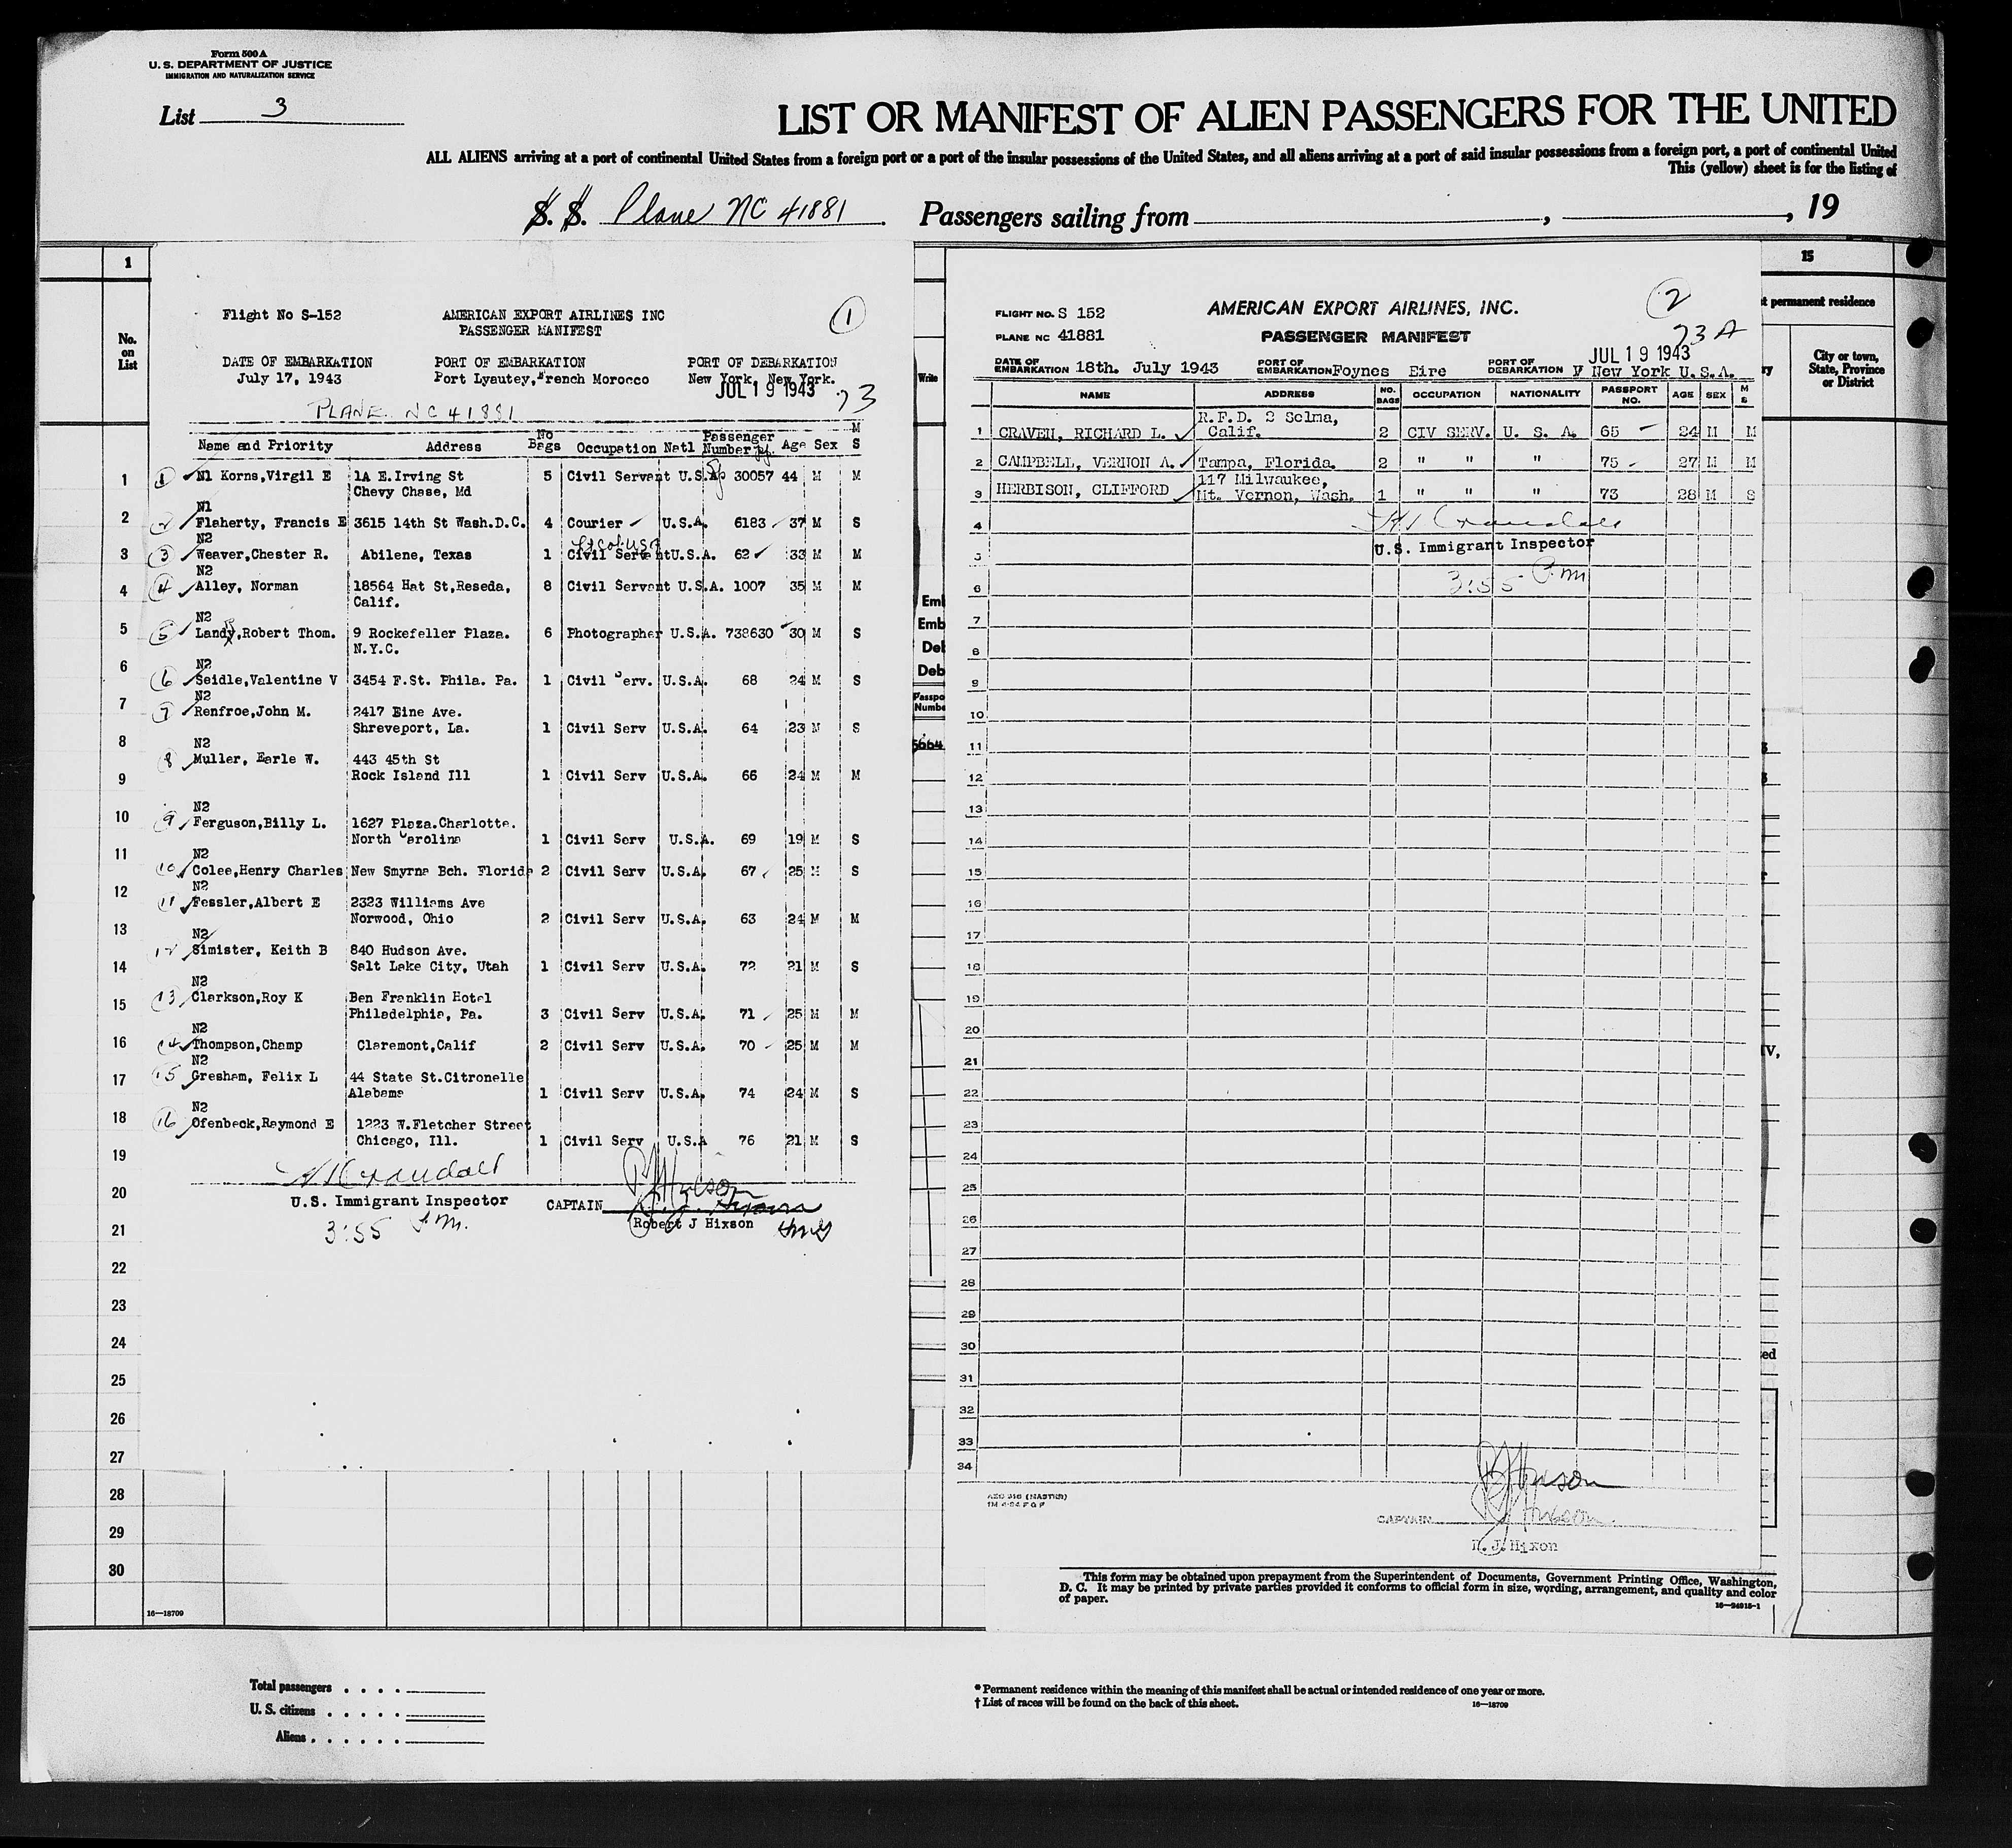 Form 500 A
U. S. DEPARTMENT OF JUSTICE
IMMIGRATION AND NATURALIZATION SERVICE
List 3
LIST OR MANIFEST OF ALIEN PASSENGERS FOR THE UNITED
ALL ALIENS arriving at a port of continental United States from a foreign port or a port of the insular possessions of the United States, and all aliens arriving at a port of said insular possessions from a foreign port, a port of continental United
This (yellow) sheet is for the listing of
S. S. Plane NC 41881 Passengers sailing from , , 19
1
No.
on
List
Flight No S-152 AMERICAN EXPORT AIRLINES INC 1
PASSENGER MANIFEST
DATE OF EMBARKATION PORT OF EMBARKATION PORT OF DEBARKATION
July 17, 1943 Port Lyautey, French Morocco New York, New York.
JUL 19 1943 73
PLANE NC 41881
Name and Priority Address No Bags Occupation Natl Passenger Number Age Sex M S
1 N1 Korns, Virgil E 1A E. Irving St 5 Civil Servant U.S.A. 30057 44 M M
Chevy Chase, Md
N1
2 Flaherty, Francis E 3615 14th St Wash.D.C. 4 Courier U.S.A. 6183 37 M S
N2
3 Weaver, Chester R. Abilene, Texas 1 Civil Servant U.S.A. 62 33 M M
N2
4 Alley, Norman 18564 Hat St, Reseda, 8 Civil Servant U.S.A. 1007 35 M M
Calif.
N2
5 Landy, Robert Thom. 9 Rockefeller Plaza. 6 Photographer U.S.A. 738630 30 M S
N.Y.C.
N2
6 Seidle, Valentine V 3454 F.St. Phila. Pa. 1 Civil Serv. U.S.A. 68 24 M S
N2
7 Renfroe, John M. 2417 Eine Ave.
Shreveport, La. 1 Civil Serv U.S.A. 64 23 M S
N2
8 Muller, Earle W. 443 45th St
Rock Island Ill 1 Civil Serv U.S.A. 66 24 M M
N2
9 Ferguson, Billy L. 1627 Plaza. Charlotte.
North Carolina 1 Civil Serv U.S.A. 69 19 M S
N2
10 Colee, Henry Charles New Smyrna Bch. Florida 2 Civil Serv U.S.A. 67 25 M S
N2
11 Fessler, Albert E 2323 Williams Ave
Norwood, Ohio 2 Civil Serv U.S.A. 63 24 M M
N2
12 Simister, Keith B 840 Hudson Ave.
Salt Lake City, Utah 1 Civil Serv U.S.A. 72 21 M S
N2
13 Clarkson, Roy K Ben Franklin Hotel
Philadelphia, Pa. 3 Civil Serv U.S.A. 71 25 M M
N2
14 Thompson, Champ Claremont, Calif 2 Civil Serv U.S.A. 70 25 M M
N2
15 Gresham, Felix L 44 State St. Citronelle
Alabama 1 Civil Serv U.S.A. 74 24 M S
N2
16 Ofenbeck, Raymond E 1223 W. Fletcher Street
Chicago, Ill. 1 Civil Serv U.S.A 76 21 M S
U.S. Immigrant Inspector CAPTAIN
3:55 P.M. Robert J Hixson
1
2
3
4
5
6
7
8
9
10
11
12
13
14
15
16
17
18
19
20
21
22
23
24
25
26
27
28
29
30
16—18709
Write
Emb
Deb
Passpo
Numbe
FLIGHT NO. S 152 AMERICAN EXPORT AIRLINES, INC. 2
PLANE NC 41881 PASSENGER MANIFEST 73 A
JUL 19 1943
DATE OF EMBARKATION 18th. July 1943 PORT OF EMBARKATION Foynes Eire PORT OF DEBARKATION New York U.S.A.
NAME ADDRESS NO. BAGS OCCUPATION NATIONALITY PASSPORT NO. AGE SEX M S
R.F.D. 2 Selma,
1 CRAVEN, RICHARD L. Calif. 2 CIV SERV. U. S. A. 65 24 M M
2 CAMPBELL, VERNON A. Tampa, Florida. 2 " " " 75 27 M M
117 Milwaukee,
3 HERBISON, CLIFFORD Mt. Vernon, Wash. 1 " " " 73 28 M S
4
U.S. Immigrant Inspector
5
6 3:55 P.M
7
8
9
10
11
12
13
14
15
16
17
18
19
20
21
22
23
24
25
26
27
28
29
30
31
32
33
34
CAPTAIN
R. J. Hixon
15
t permanent residence
City or town,
State, Province
or District
This form may be obtained upon prepayment from the Superintendent of Documents, Government Printing Office, Washington,
D. C. It may be printed by private parties provided it conforms to official form in size, wording, arrangement, and quality and color
of paper.
16—24915-1
Total passengers
U. S. citizens
Aliens
* Permanent residence within the meaning of this manifest shall be actual or intended residence of one year or more.
† List of races will be found on the back of this sheet. 16—18709